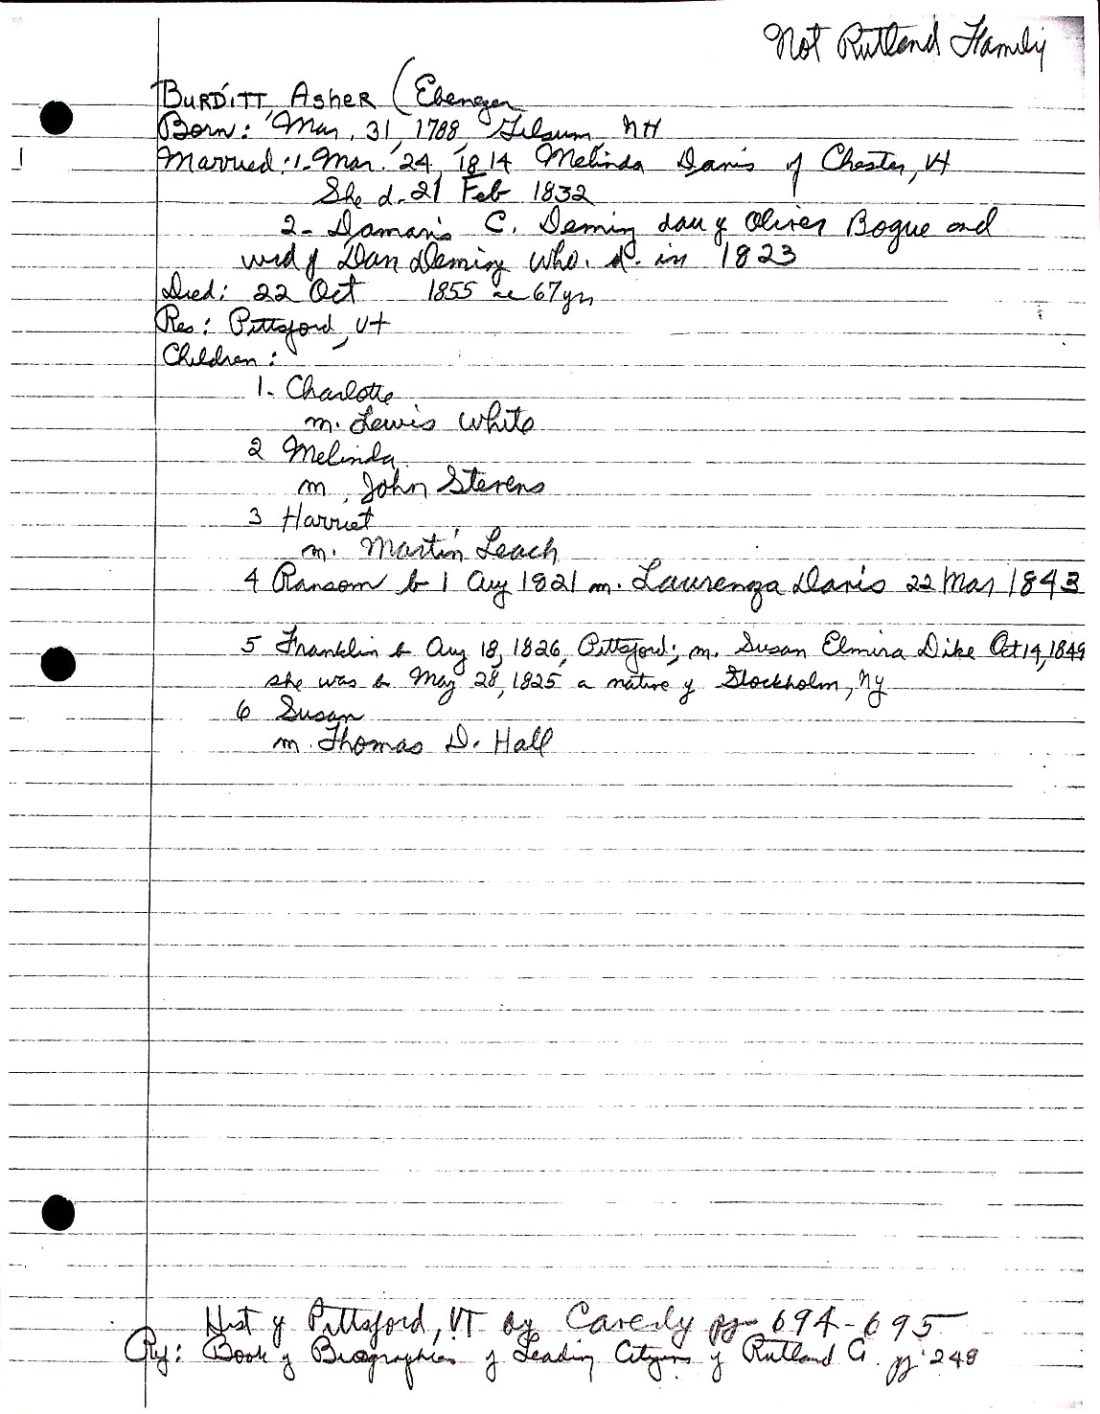 Not Rutland Family
BURDITT, Asher (Ebenezer
Born: Mar, 31, 1788, Gilsum, NH
Married: 1. Mar. 24, 1814 Melinda Davis of Chester, Vt
She d. 21 Feb 1832
2- Damaris C. Deming dau of Oliver Bogue and
wid of Dan Deming who. d. in 1823
Died: 22 Oct 1855 ae 67yrs
Res: Pittsford, Vt
Children:
1. Charlotte
m. Lewis White
2 Melinda
m. John Stevens
3 Harriet
m. Martin Leach
4 Ransom b 1 Aug 1821 m. Laurenza Davis 22 Mar 1843
5 Franklin b Aug 18, 1826, Pittsford; m. Susan Elmira Dike Oct 14, 1849
she was b May 28, 1825 a native of Stockholm, NY
6 Susan
m. Thomas D. Hall
Hist of Pittsford, VT by Caverly pg 694-695
Ref: Book of Biographies of Leading Citizens of Rutland Co. pg 248